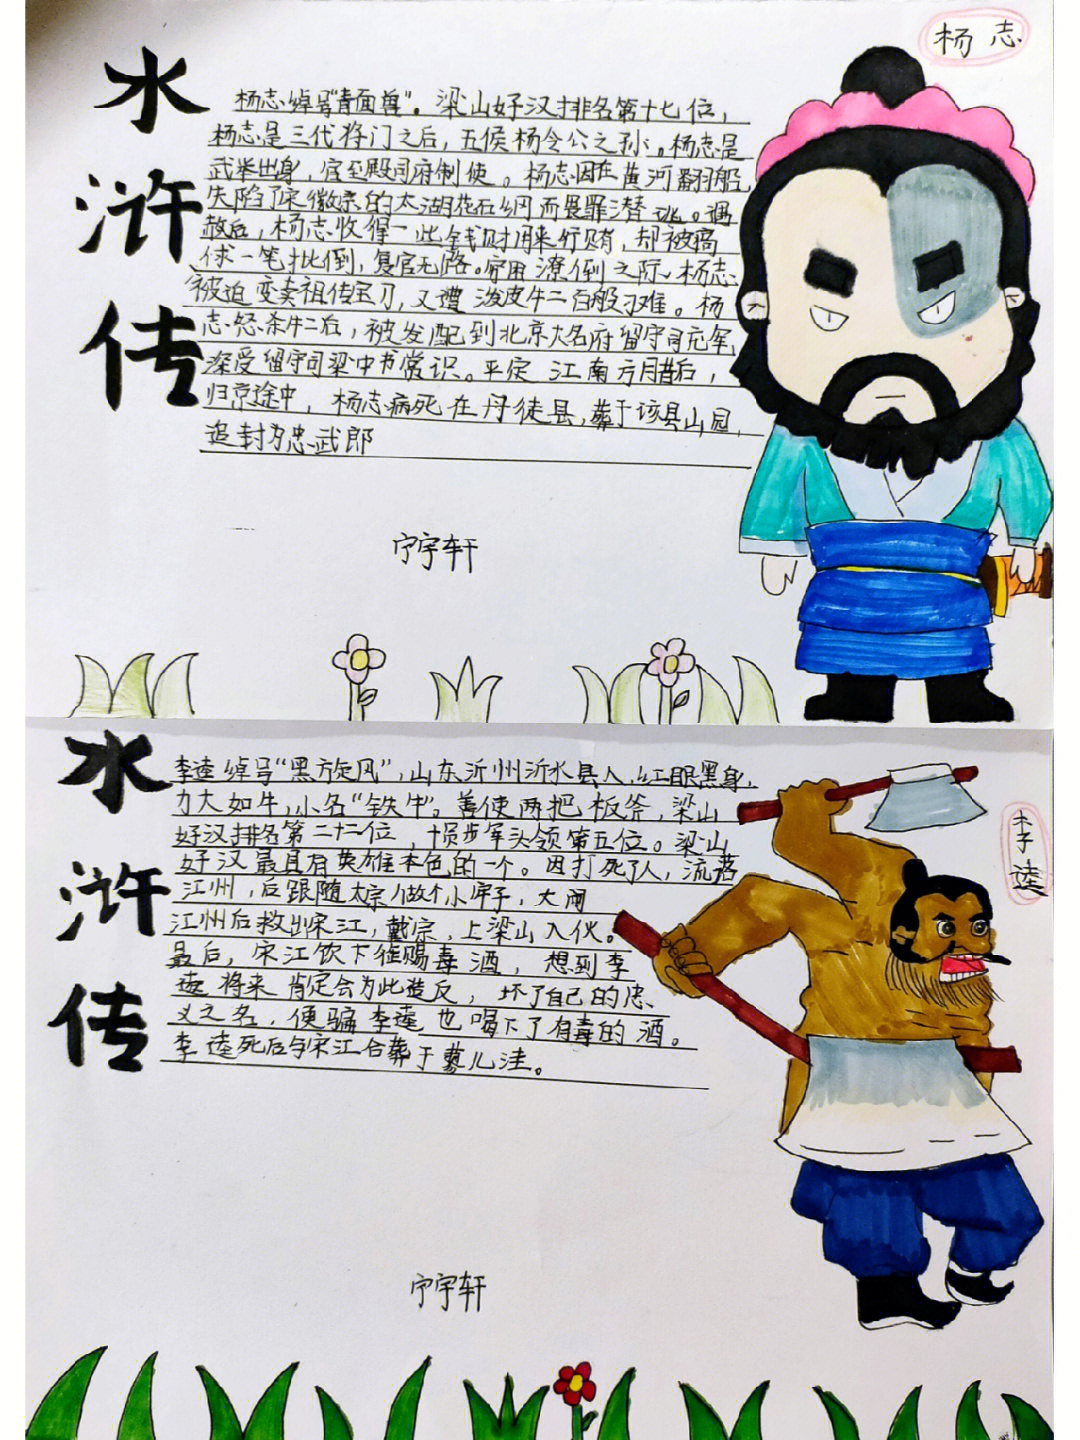 水浒传
杨志
杨志绰号"青面兽"。梁山好汉排名第十七位，
杨志是三代将门之后，五侯杨令公之孙。杨志是
武举出身，官至殿司府制使。杨志因在黄河翻船，
失陷了宋徽宗的太湖花石纲而畏罪潜逃。遇
赦后，杨志收得一些钱财用来行贿，却被高
俅一笔批倒，复官无路。穷困潦倒之际，杨志
被迫变卖祖传宝刀，又遭泼皮牛二百般刁难。杨
志怒杀牛二后，被发配到北京大名府留守司充军，
深受留守司梁中书赏识。平定江南方腊后，
归京途中，杨志病死在丹徒县，葬于该县山园，
追封为忠武郎
宁宇轩
水浒传
李逵
李逵绰号"黑旋风"，山东沂州沂水县人，红眼黑身，
力大如牛，小名"铁牛"。善使两把板斧，梁山
好汉排名第二十二位，步军头领第五位。梁山
好汉最具有英雄本色的一个。因打死了人，流落
江州，后跟随太宗做个小牢子，大闹
江州后救出宋江，戴宗，上梁山入伙。
最后，宋江饮下催赐毒酒，想到李
逵将来肯定会为此造反，坏了自己的忠
义之名，便骗李逵也喝下了有毒的酒。
李逵死后与宋江合葬于蓼儿洼。
宁宇轩